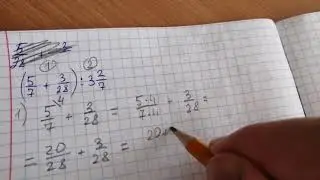 ① ②
(5/7 + 3/28) : 3 2/7
1) 5/7 \4 + 3/28 = 5·4/7·4 + 3/28 =
= 20/28 + 3/28 = 20+